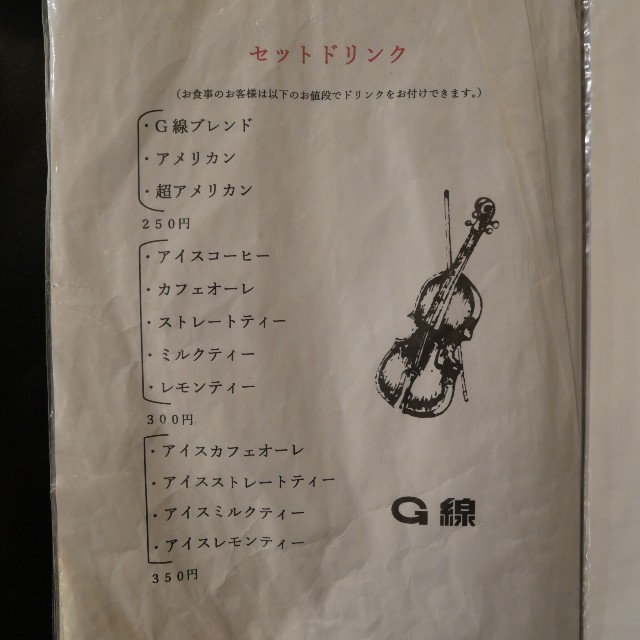 セットドリンク
（お食事のお客様は以下のお値段でドリンクをお付けできます。）
・G線ブレンド
・アメリカン
・超アメリカン
250円
・アイスコーヒー
・カフェオーレ
・ストレートティー
・ミルクティー
・レモンティー
300円
・アイスカフェオーレ
・アイスストレートティー
・アイスミルクティー
・アイスレモンティー
350円
G線